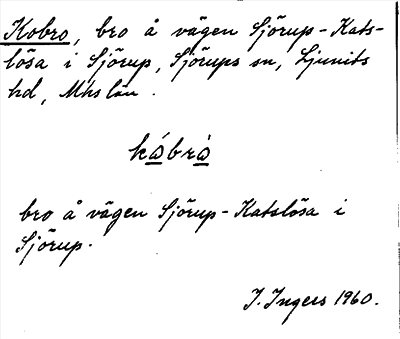 Kobro, bro å vägen Sjörup-Kats-
lösa i Sjörup, Sjörups sn, Ljunits
hd, Mhs län.
kábrà
bro å vägen Sjörup-Katslösa i
Sjörup.
I. Ingers 1960.